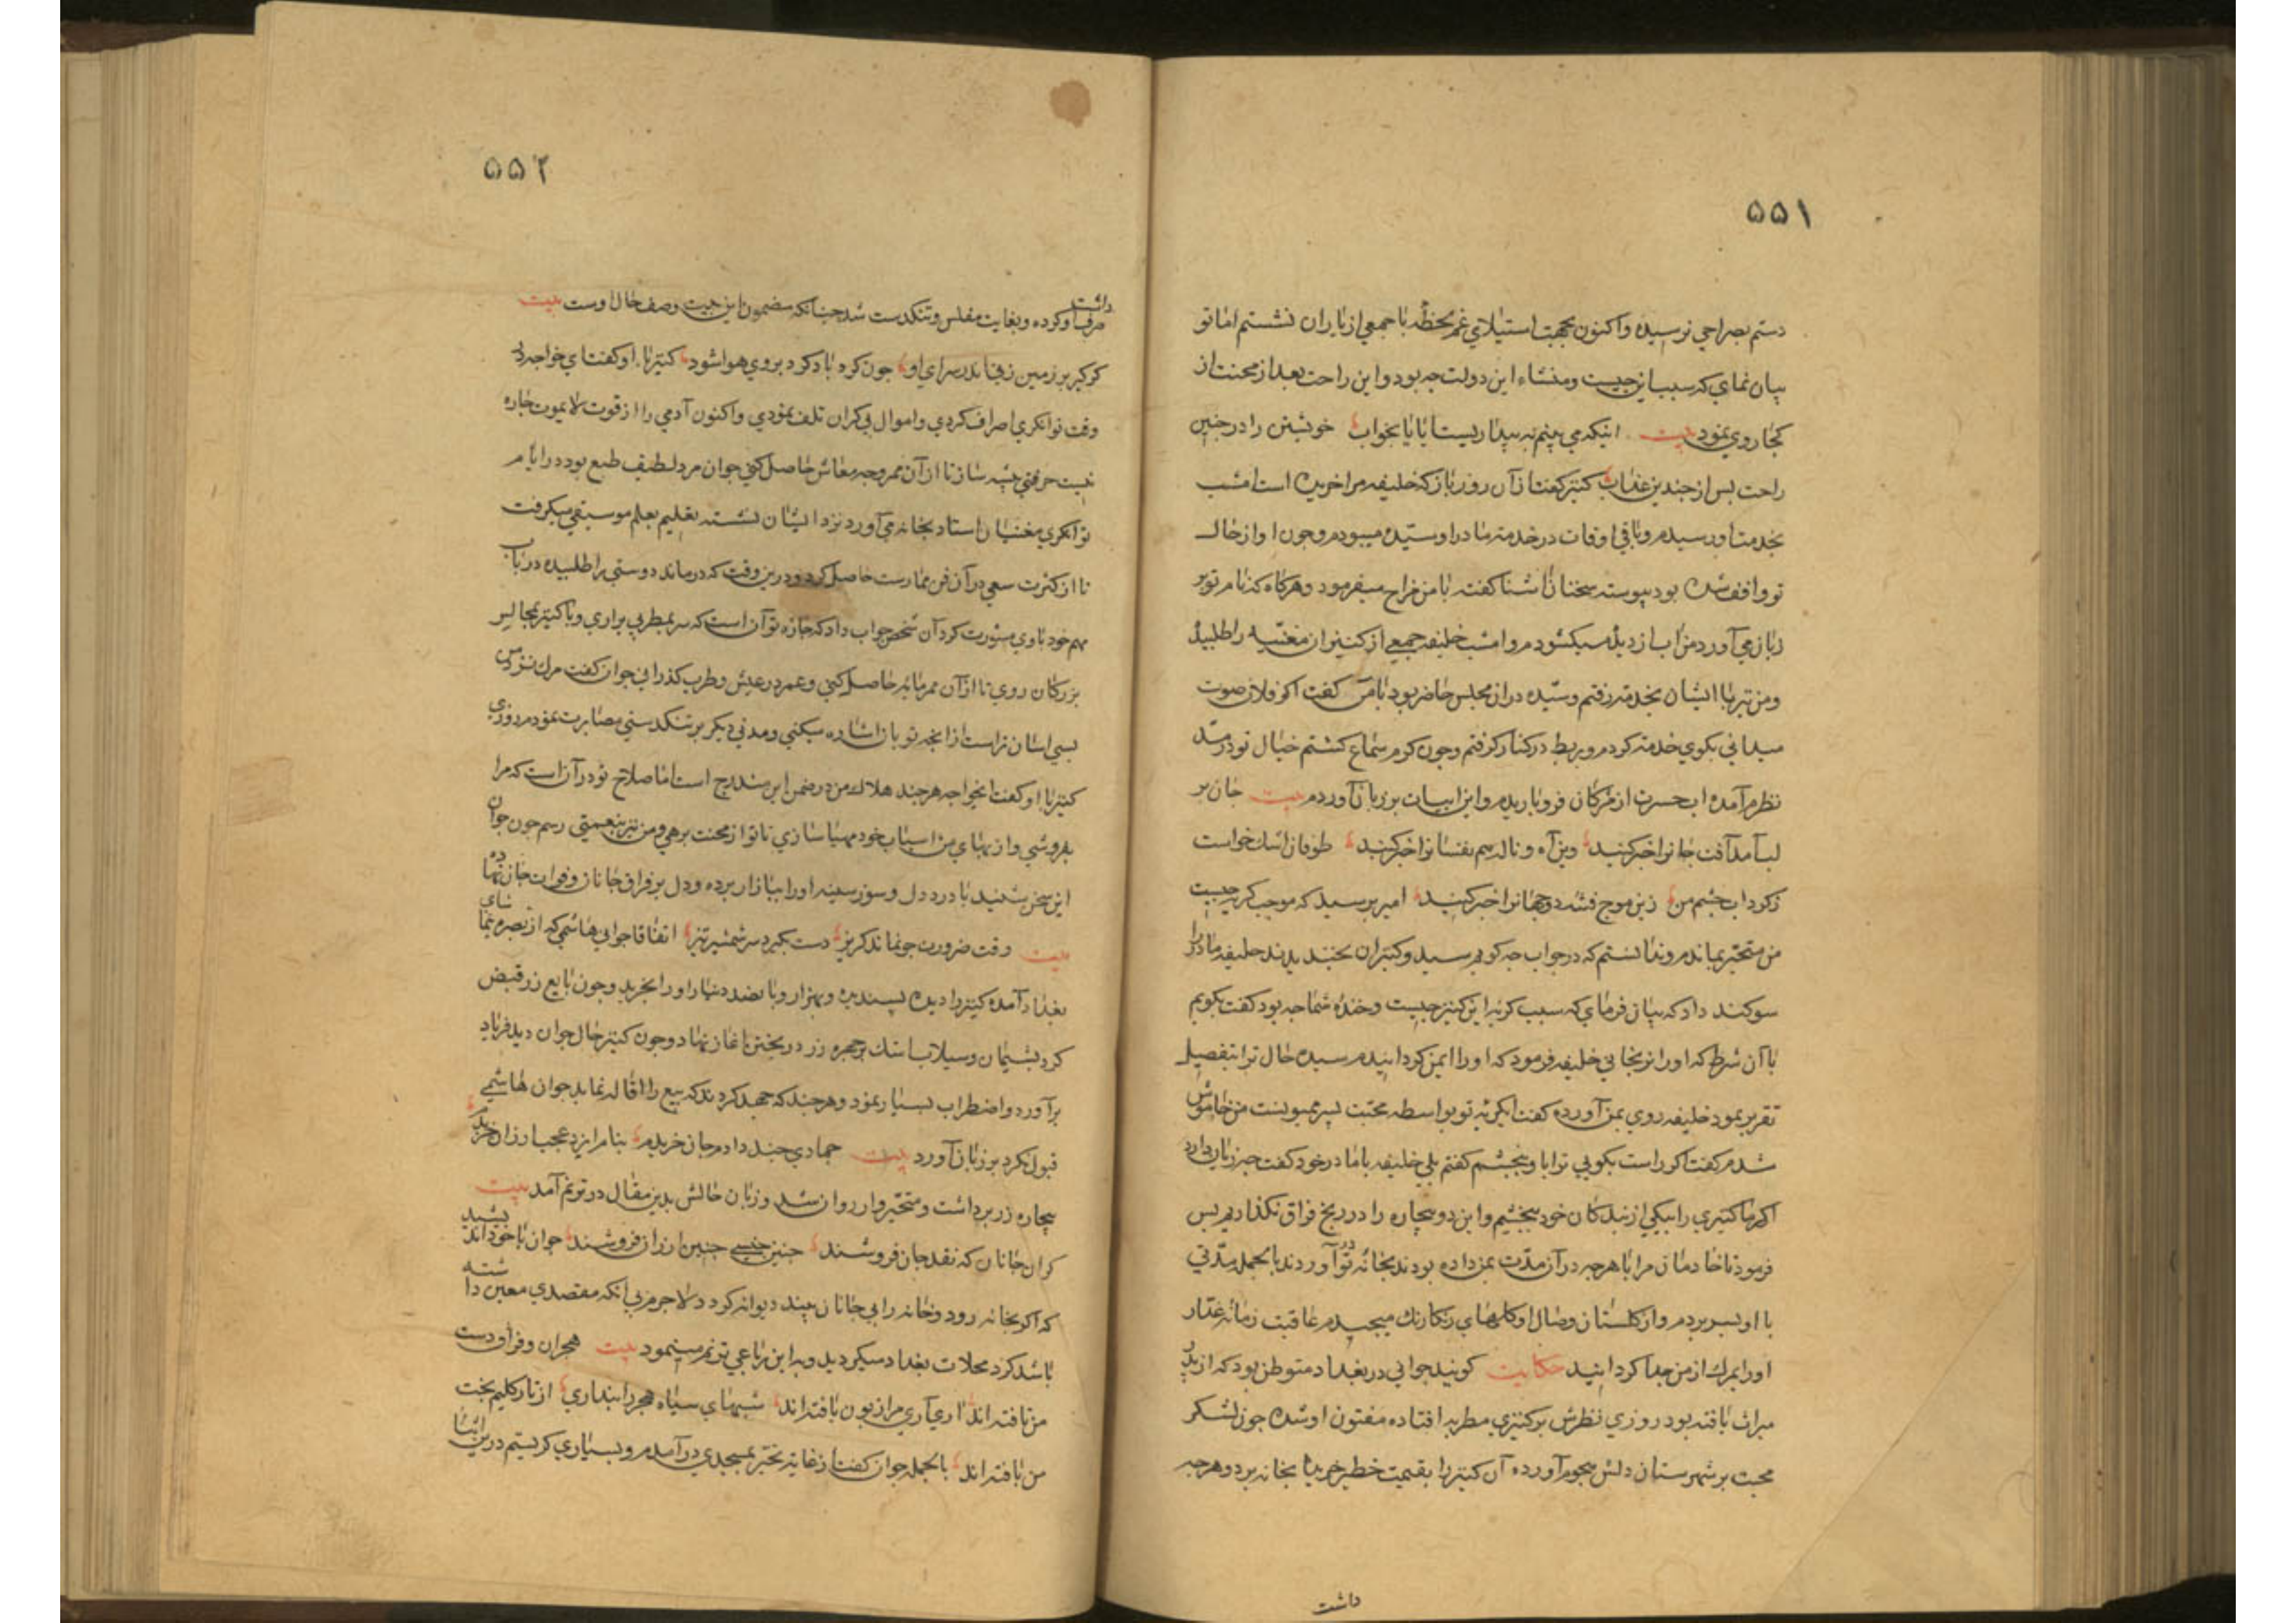 ۵۵۱
دستم بصراحی نرسیده واکنون بجهت استیلای غم لحظهٔ با جمعی از یاران نشستم اما تو
بیان نمای که سبب این چیست ومنشاء این دولت چه بود و این راحت بعد از محنت از
کجا روی نمود بیت اینکه می بینم به بیداریست یا بخواب خویشتن را در چنین
راحت پس از چندین عذاب کنیز کفت از آن روز باز که خلیفه مرا خریده است امشب
بخدمت او رسیدم وباقی اوقات در خدمت مادر او سیّده میبودم وچون او از حال
تو واقف شده بود پیوسته سخنان آشنا کفته با من مزاح میفرمود وهرکاه که نام تو بر
زبان می آورد من آب از دیده میکشودم وامشب خلیفه جمعی از کنیزان مغنّیه را طلبید
ومن نیز با ایشان بخدمت رفتم وسیّده در آن مجلس حاضر بود با من کفت اکر فلان صوت
میدانی بکوی خدمت کردم وبربط در کنار کرفتم وچون کرم سماع کشتم خیال تو در مدّ
نظرم آمده آب حسرت از مژکان فرو باریدم واین ابیات بر زبان آوردم بیت جان بر
لب آمد آفت جانرا خبر کنید وین آه و ناله هم نفسانرا خبر کنید طوفان اشک خواست
ز کرداب چشم من زین موج فتنه دو جهانرا خبر کنید امیر پرسید که موجب کریه چیست
من متحیّر بماندم وندانستم که در جواب چه کویم سیده وکنیزان بخندیدند خلیفه مادر را
سوکند داد که بیان فرمای که سبب کریه این کنیز چیست وخندهٔ شما چه بود کفت بکویم
با آن شرط که او را نرنجانی خلیفه فرمود که او را ایمن کردانیدم سیده حال ترا بتفصیل
تقریر نمود خلیفه روی بمن آورده کفت ایکریه تو بواسطه محبّت پسر میبوینست من خاموش
شدم کفت اکر راست بکویی ترا باو بخشم کفتم بلی خلیفه با مادر خود کفت چه زیان دارد
اکر ما کنیزی را بیکی از بندکان خود بخشیم واین دو بیچاره را در رنج فراق نکذاریم پس
فرمود تا خادمان مرا با هرچه در آن مدّت بمن داده بودند بخانهٔ تو در آوردند بالجمله مدّتی
با او بسر بردم واز کلستان وصال او کلهای رنکارنک میچیدم عاقبت زمانهٔ غدّار
او را بمرک از من جدا کردانید حکایت کویند جوانی در بغداد متوطن بود که از پدر
میراث یافته بود روزی نظرش بر کنیزی مطربه افتاده مفتون او شده چون لشکر
محبت بر شهرستان دلش هجوم آورده آن کنیز را بقیمت خطیر خریده بخانه برد وهرچه
داشت
۵۵۲
داشت
صرف او کرده وبغایت مفلس وتنکدست شد چنانکه مضمون این بیت وصف حال اوست بیت
کر کیر بر زمین زفتابدر سرای او چون کرد باد کرد بروی هوا شود کنیز با او کفت ای خواجه در
وقت توانکری اصراف کردی واموال بی کران تلف نمودی واکنون آدمی را از قوت لا یموت چاره
نیست حرفتی پیشه ساز تا از آن ممر وجه معاش حاصل کنی جوان مرد لطیف طبع بود در ایام
توانکری مغنیان استاد بخانه می آورد نزد ایشان نشسته بتعلیم علم موسیقی میکرفت
تا از کثرت سعی در آن فن ممارست حاصل کرد ودرین وقت که درماند دوستی را طلبیده در باب
مهم خود با وی مشورت کرد آن شخص جواب داد که چاره تو آن است که سر بمطربی برآری وبا کنیز بمجالس
بزرکان روی تا از آن ممر مایهٔ حاصل کنی وعمر در عیش وطرب کذرانی جوان کفت مرک نزد من
بسی آسان تر است از آنچه تو بآن اشاره میکنی ومدتی دیکر بر تنکدستی مصابرت نمودم روزی
کنیز با او کفت ایخواجه هر چند هلاک من در ضمن این مندرج است اما صلاح تو در آن است که مرا
بفروشی واز بهای من اسباب خود مهیا سازی تا تو از محنت برهی ومن نیز بنعمتی رسم چون جوان
این سخن شنید با درد دل و سوز سینه او را ببازار برده ودل بر فراق جانان وفوات جان نهاده
بیت وقت ضرورت چو نماند کریز دست بکیرد سر شمشیر تیز اتفاقا جوانی هاشمی که از بصره بتماشای
بغداد آمده کنیز را دیده پسندیده وبهزار وپانصد دینار او را بخرید وچون بایع زر قبض
کرد پشیمان وسیلاب اشک بر چهره زرد ریختن آغاز نهاد وچون کنیز حال جوان دید فریاد
برآورد واضطراب بسیار نمود وهر چند که جهد کردند که بیع را اقاله نماید جوان هاشمی
قبول نکرد بر زبان آورد بیت جمادی چند دادم جان خریدم بنام ایزد عجب ارزان خریدم
بیچاره زر برداشت ومتحیّروار روان شد وزبان حالش بدین مقال در ترنم آمد بیت
کران جانان که نقد جان فروشند چنین جنسی چنین ارزان فروشند جوان با خود اندیشید
که اکر بخانه رود وخانه را بی جانان بیند دیوانه کردد لا جرم بی آنکه مقصدی معین داشته
باشد کرد محلات بغداد میکردید وبه این رباعی ترنم مینمود بیت هجران وفراق دست
من تافته اند اری آری مرا زبون یافته اند شبهای سیاه هجر را پنداری از تار کلیم بخت
من بافته اند بالجمله جوان کفت از غایت تحیّر بمسجدی در آمدم وبسیاری کریستم در این اثنا